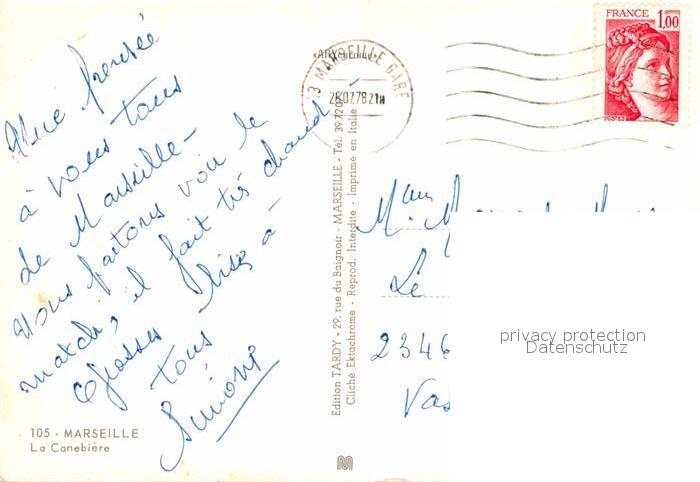 Une pensée
à vous tous
de Marseille -
Nous partons voir le
match, il fait très chaud -
Grosses Bises à
tous
Simone
105 - MARSEILLE
La Canebière
Edition TARDY - 29, rue du Baignoir - MARSEILLE - Tél. 39720
Cliché Ektachrome - Reprod. Interdite - Imprimé en Italie
13 MARSEILLE GARE
21H
FRANCE
1,00
POSTES
Le
2346
Vas
privacy protection
Datenschutz